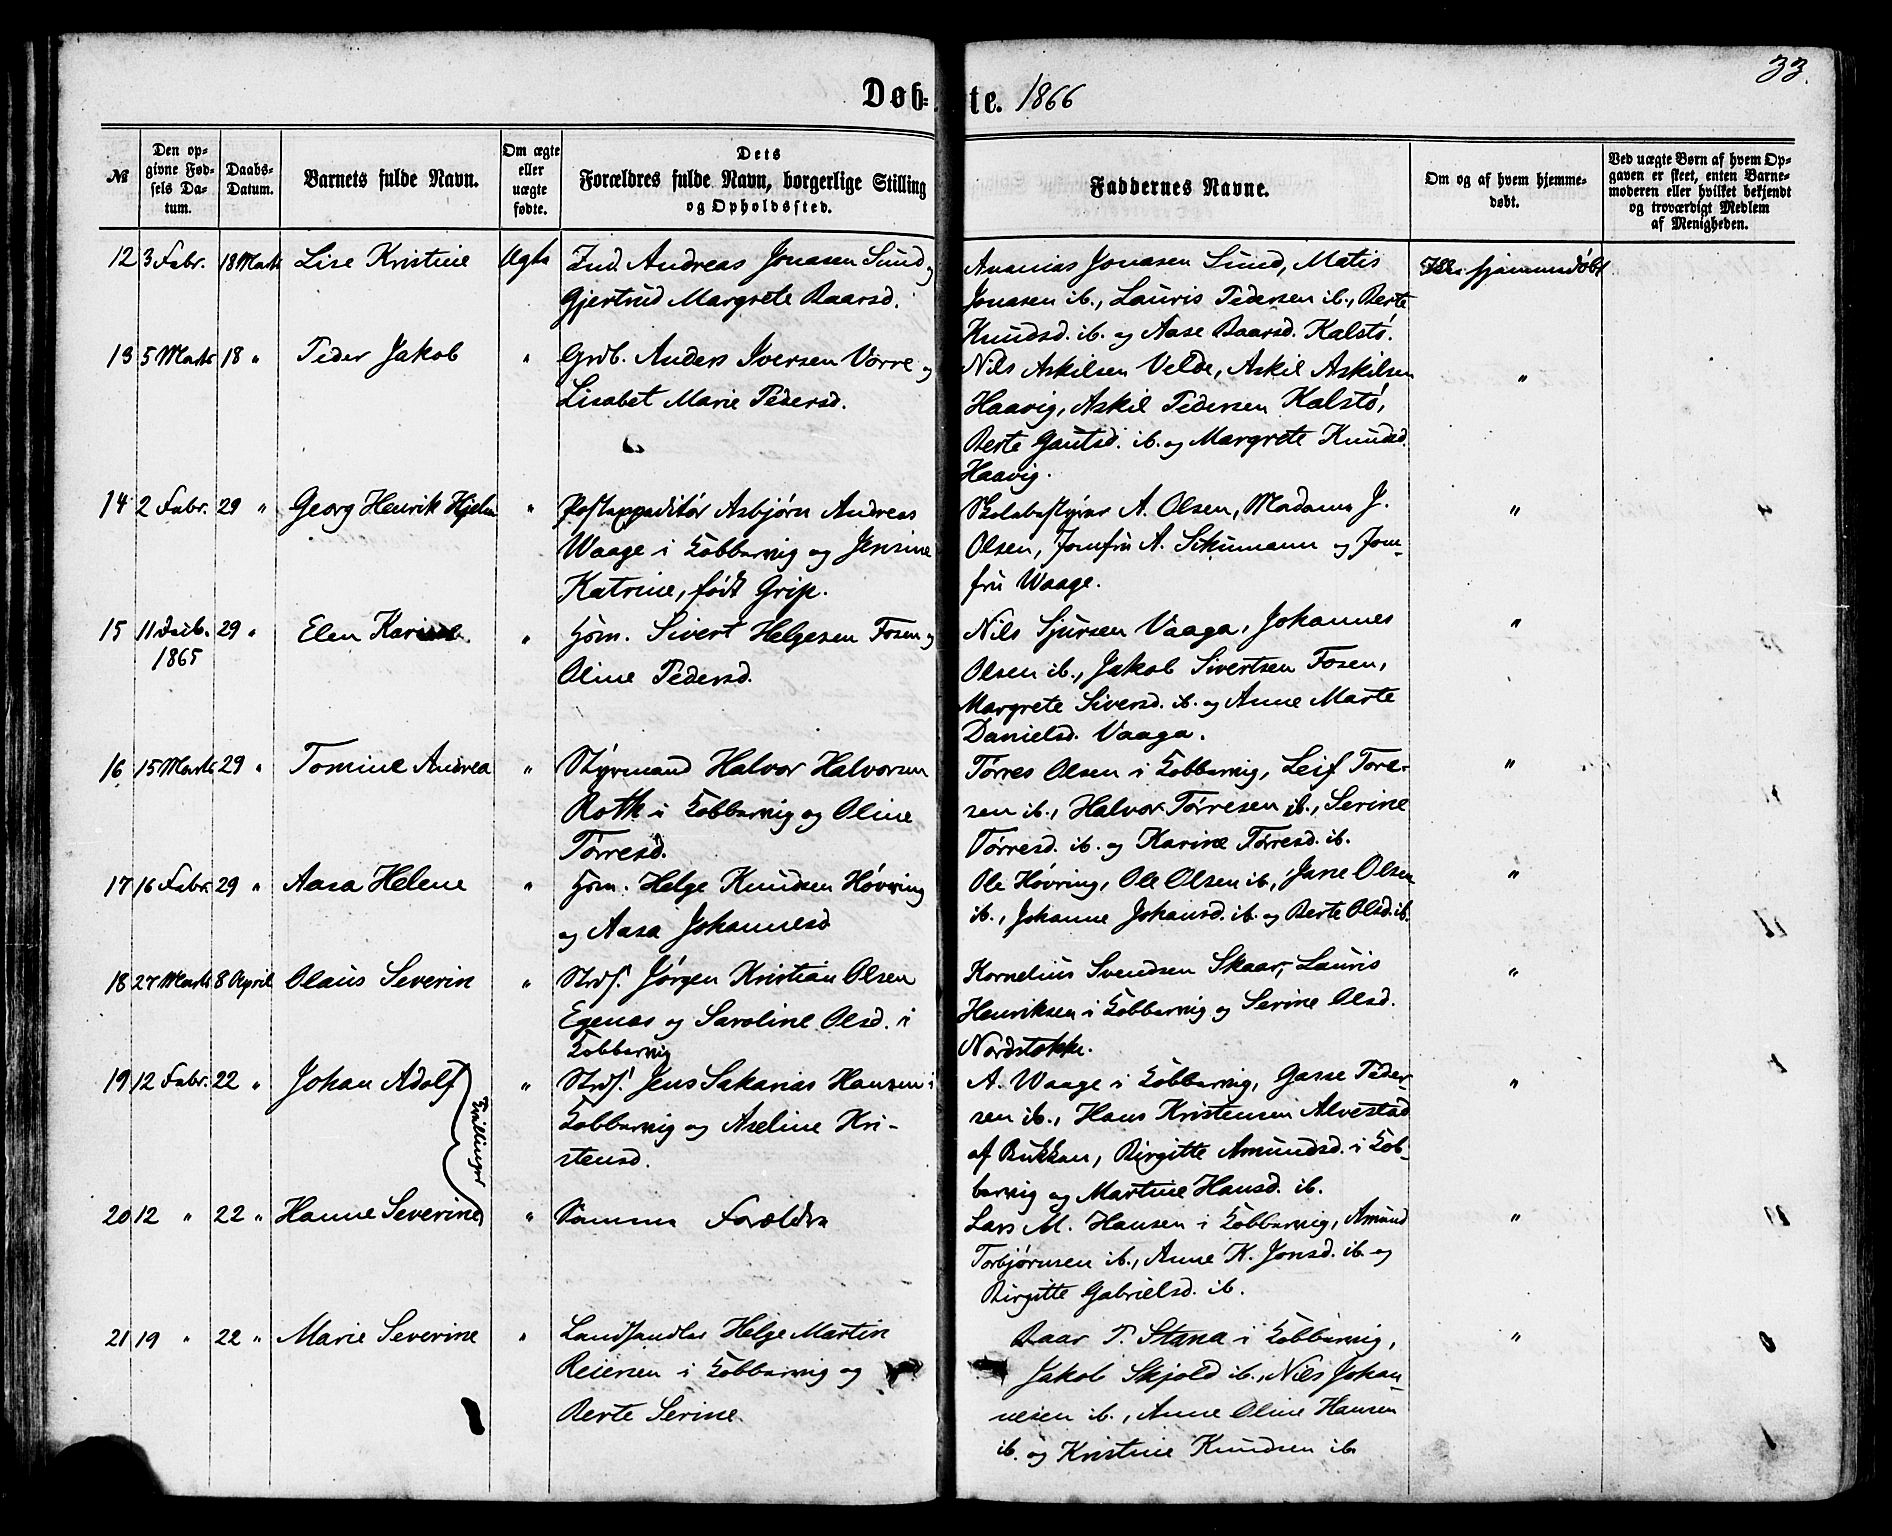 33.
Døb-te. 1866
№
Den opgivne Fødsels Datum.
Daabs-Datum.
Barnets fulde Navn.
Om ægte eller uægte fødte.
Dets Forældres fulde Navn, borgerlige Stilling og Opholdssted.
Faddernes Navne.
Om og af hvem hjemmedøbt.
Ved uægte Børn af hvem Opgaven er skeet, enten Barnemoderen eller hvilket bekjendt og troværdigt Medlem af Menigheden.
12 3 Febr. 18 Marts Lise Kristine Ægte Ind. Andreas Jonasen Sund og
Gjertrud Margrete Baarsd.
Ananias Jonasen Sund, Matis
Jonasen ib., Lauris Pedersen ib., Berte
Knudsd. ib. og Aase Baarsd. Kalstø.
hjemmedøbt
13 5 Marts 18 " Peder Jakob " Grdb. Anders Iversen Vorre og
Lisabet Marie Pedersd.
Nils Askilsen Velde, Askil Askilsen
Haavig, Askil Pedersen Kalstø,
Berte Gautsd. ib. og Margrete Knudsd.
Haavig.
"
14 2 Febr. 29 " Georg Henrik Hjelm " Postexpeditør Asbjørn Andreas
Waage i Kobbervig og Jensine
Katrine, født Grip.
Skolebestyrer A. Olsen, Madame J.
Olsen, Jomfru A. Schumann og Jom-
fru Waage.
"
15 11 Desb. 1865 29 " Elen Karine " Hsm. Sivert Helgesen Fosen og
Oline Pedersd.
Nils Sjursen Vaaga, Johannes
Olsen ib., Jakob Sivertsen Fosen,
Margrete Siversd. ib. og Anne Marte
Danielsd. Vaaga.
"
16 15 Marts 29 " Tomine Andrea " Styrmand Halvor Halvorsen
Roth i Kobbervig og Oline
Tørresd.
Tørres Olsen i Kobbervig, Leif Tore-
sen ib., Halvor Tørresen ib., Serine
Tørresd. ib. og Karine Tørresd. ib.
"
17 16 Febr. 29 " Aasa Helene " Hsm. Helge Knudsen Høvring
og Aasa Johannesd
Ole Høvring, Ole Olsen ib., Jane Olsen
ib., Johanne Johansd. ib. og Berte Olsd. ib.
"
18 27 Marts 8 April Olaus Severin " Strds. Jørgen Kristian Olsen
Egenes og Saroline Olsd. i
Kobbervig
Kornelius Svendsen Skaar, Lauris
Henriksen i Kobbervig og Serine Olsd.
Nordstokke.
"
19 12 Febr. 22 " Johan Adolf " Strds. Jens Sakarias Hansen i
Kobbervig og Aseline Kri-
stensd.
Tvillinger
A. Waage i Kobbervig, Gasse Peder-
sen ib., Hans Kristensen Alvestad
af Bukken, Birgitte Amundsd. i Kob-
bervig og Martine Hansd. ib.
"
20 12 " 22 " Hanne Severine " Samme Forældre
Lars M. Hansen i Kobbervig, Amund
Torbjørnsen ib., Anne K. Jonsd. ib. og
Birgitte Gabrielsd. ib.
"
21 19 " 22 " Marie Severine " Landhandler Helge Martin
Reiersen i Kobbervig og
Berte Serine
Baar T. Stana i Kobbervig,
Jakob Skjold ib., Nils Johan-
nesen ib., Anne Oline Hansen
ib. og Kristine Knudsen ib.
"